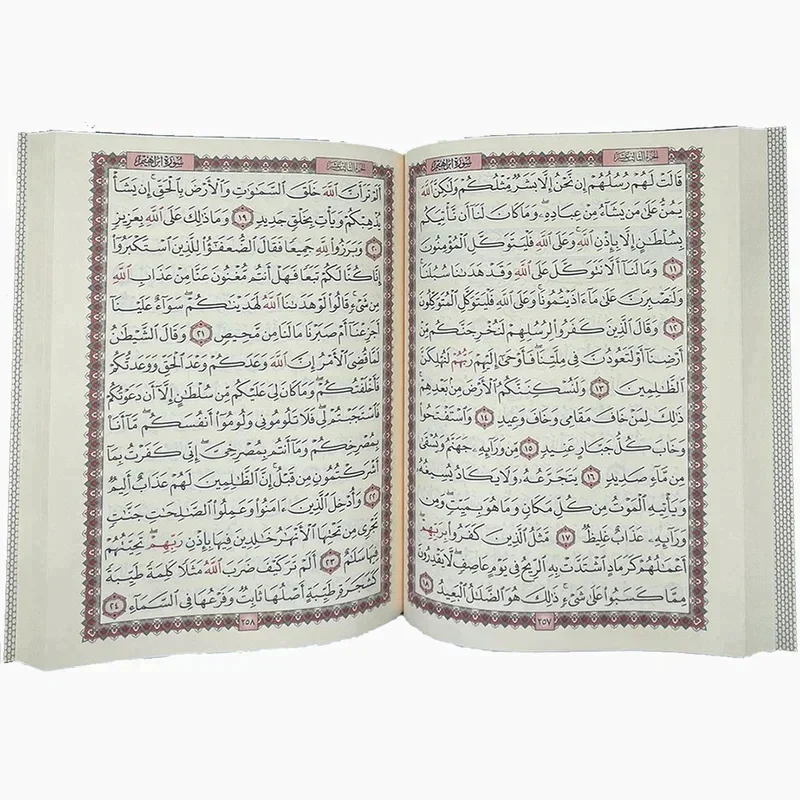 سورة ابراهيم
الجزء الثالث عشر
قَالَتْ لَهُمْ رُسُلُهُمْ إِن نَّحْنُ إِلَّا بَشَرٌ مِّثْلُكُمْ وَلَٰكِنَّ اللَّهَ
يَمُنُّ عَلَىٰ مَن يَشَاءُ مِنْ عِبَادِهِ ۖ وَمَا كَانَ لَنَا أَن نَّأْتِيَكُم
بِسُلْطَانٍ إِلَّا بِإِذْنِ اللَّهِ ۚ وَعَلَى اللَّهِ فَلْيَتَوَكَّلِ الْمُؤْمِنُونَ
١١ وَمَا لَنَا أَلَّا نَتَوَكَّلَ عَلَى اللَّهِ وَقَدْ هَدَانَا سُبُلَنَا ۚ
وَلَنَصْبِرَنَّ عَلَىٰ مَا آذَيْتُمُونَا ۚ وَعَلَى اللَّهِ فَلْيَتَوَكَّلِ الْمُتَوَكِّلُونَ
١٢ وَقَالَ الَّذِينَ كَفَرُوا لِرُسُلِهِمْ لَنُخْرِجَنَّكُم مِّنْ
أَرْضِنَا أَوْ لَتَعُودُنَّ فِي مِلَّتِنَا ۖ فَأَوْحَىٰ إِلَيْهِمْ رَبُّهُمْ لَنُهْلِكَنَّ
الظَّالِمِينَ ١٣ وَلَنُسْكِنَنَّكُمُ الْأَرْضَ مِن بَعْدِهِمْ ۚ
ذَٰلِكَ لِمَنْ خَافَ مَقَامِي وَخَافَ وَعِيدِ ١٤ وَاسْتَفْتَحُوا
وَخَابَ كُلُّ جَبَّارٍ عَنِيدٍ ١٥ مِّن وَرَائِهِ جَهَنَّمُ وَيُسْقَىٰ
مِن مَّاءٍ صَدِيدٍ ١٦ يَتَجَرَّعُهُ وَلَا يَكَادُ يُسِيغُهُ
وَيَأْتِيهِ الْمَوْتُ مِن كُلِّ مَكَانٍ وَمَا هُوَ بِمَيِّتٍ ۖ وَمِن
وَرَائِهِ عَذَابٌ غَلِيظٌ ١٧ مَّثَلُ الَّذِينَ كَفَرُوا بِرَبِّهِمْ ۖ
أَعْمَالُهُمْ كَرَمَادٍ اشْتَدَّتْ بِهِ الرِّيحُ فِي يَوْمٍ عَاصِفٍ ۖ لَّا يَقْدِرُونَ
مِمَّا كَسَبُوا عَلَىٰ شَيْءٍ ۚ ذَٰلِكَ هُوَ الضَّلَالُ الْبَعِيدُ ١٨
٢٥٧
سورة ابراهيم
الجزء الثالث عشر
أَلَمْ تَرَ أَنَّ اللَّهَ خَلَقَ السَّمَاوَاتِ وَالْأَرْضَ بِالْحَقِّ ۚ إِن يَشَأْ
يُذْهِبْكُمْ وَيَأْتِ بِخَلْقٍ جَدِيدٍ ١٩ وَمَا ذَٰلِكَ عَلَى اللَّهِ بِعَزِيزٍ
٢٠ وَبَرَزُوا لِلَّهِ جَمِيعًا فَقَالَ الضُّعَفَاءُ لِلَّذِينَ اسْتَكْبَرُوا
إِنَّا كُنَّا لَكُمْ تَبَعًا فَهَلْ أَنتُم مُّغْنُونَ عَنَّا مِنْ عَذَابِ اللَّهِ
مِن شَيْءٍ ۚ قَالُوا لَوْ هَدَانَا اللَّهُ لَهَدَيْنَاكُمْ ۖ سَوَاءٌ عَلَيْنَا
أَجَزِعْنَا أَمْ صَبَرْنَا مَا لَنَا مِن مَّحِيصٍ ٢١ وَقَالَ الشَّيْطَانُ
لَمَّا قُضِيَ الْأَمْرُ إِنَّ اللَّهَ وَعَدَكُمْ وَعْدَ الْحَقِّ وَوَعَدتُّكُمْ
فَأَخْلَفْتُكُمْ ۖ وَمَا كَانَ لِيَ عَلَيْكُم مِّن سُلْطَانٍ إِلَّا أَن دَعَوْتُكُمْ
فَاسْتَجَبْتُمْ لِي ۖ فَلَا تَلُومُونِي وَلُومُوا أَنفُسَكُم ۖ مَّا أَنَا
بِمُصْرِخِكُمْ وَمَا أَنتُم بِمُصْرِخِيَّ ۖ إِنِّي كَفَرْتُ بِمَا
أَشْرَكْتُمُونِ مِن قَبْلُ ۗ إِنَّ الظَّالِمِينَ لَهُمْ عَذَابٌ أَلِيمٌ
٢٢ وَأُدْخِلَ الَّذِينَ آمَنُوا وَعَمِلُوا الصَّالِحَاتِ جَنَّاتٍ
تَجْرِي مِن تَحْتِهَا الْأَنْهَارُ خَالِدِينَ فِيهَا بِإِذْنِ رَبِّهِمْ ۖ تَحِيَّتُهُمْ
فِيهَا سَلَامٌ ٢٣ أَلَمْ تَرَ كَيْفَ ضَرَبَ اللَّهُ مَثَلًا كَلِمَةً طَيِّبَةً
كَشَجَرَةٍ طَيِّبَةٍ أَصْلُهَا ثَابِتٌ وَفَرْعُهَا فِي السَّمَاءِ ٢٤
٢٥٨